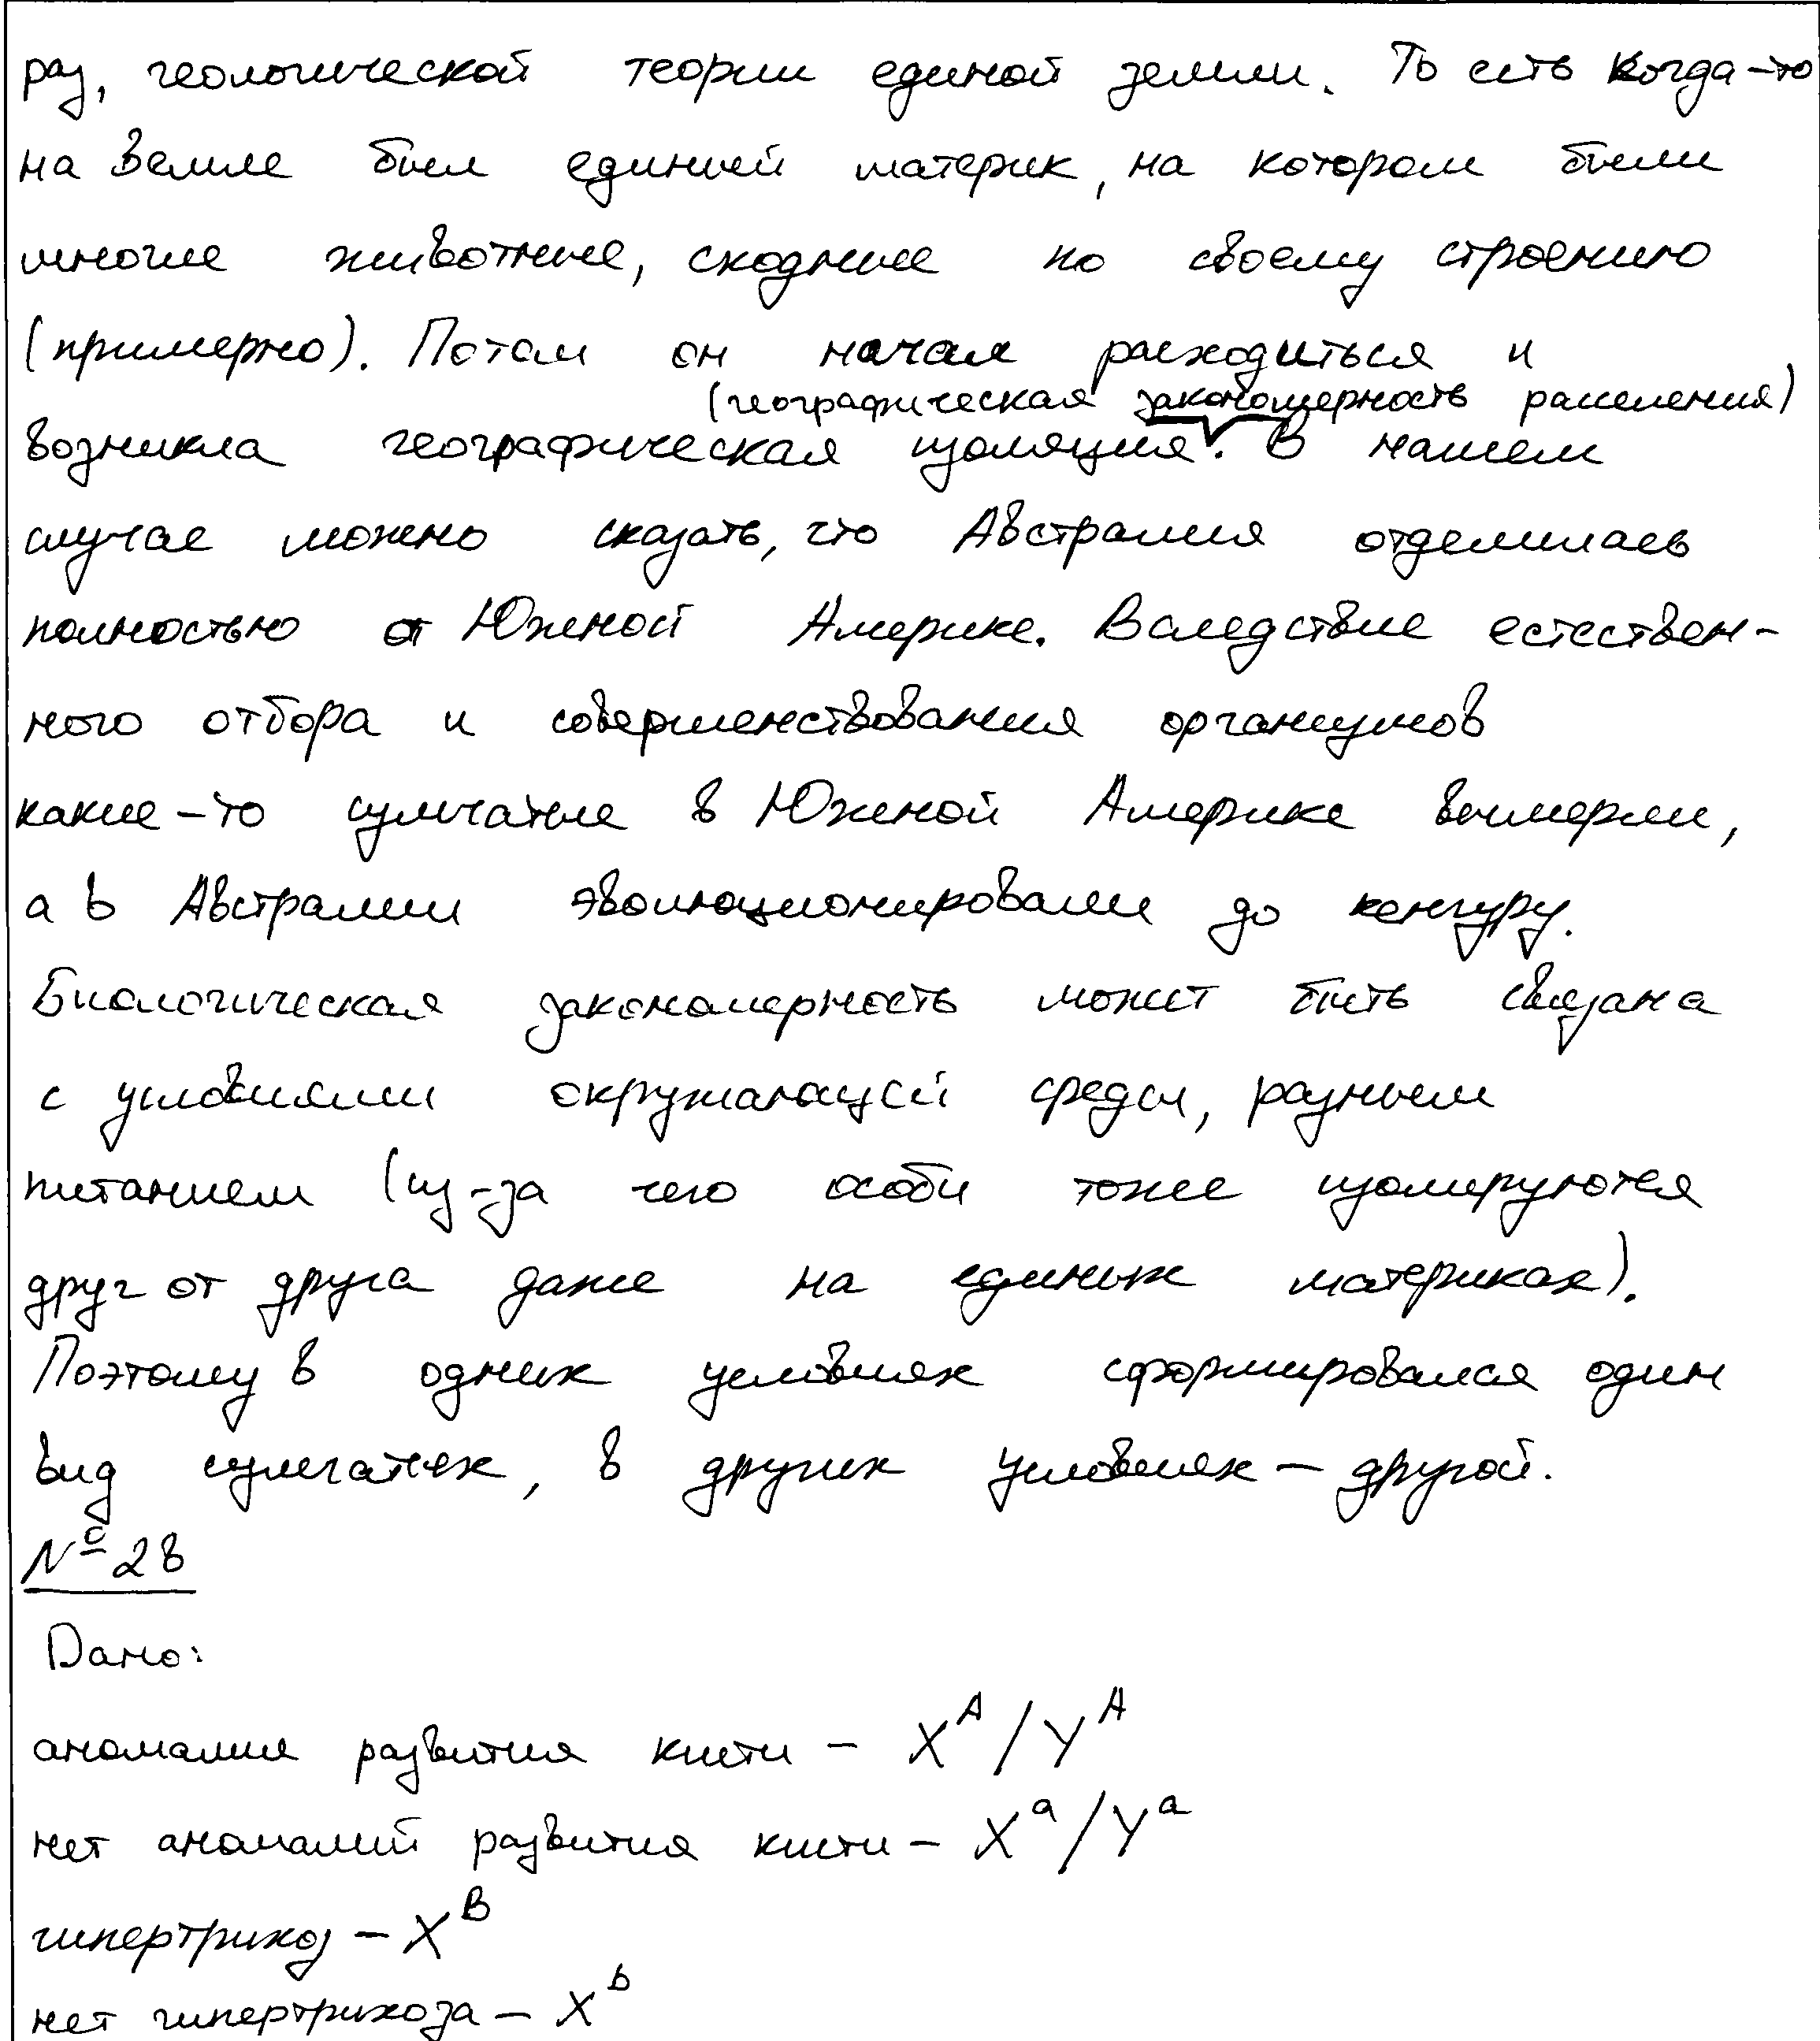 раз, геологической теории единой земли. То есть когда-то
на Земле был единый материк, на котором были
многие животные, сходные по своему строению
(примерно). Потом он начал расходиться и
(географическая закономерность расселения)
возникла географическая изоляция. В нашем
случае можно сказать, что Австралия отделилась
полностью от Южной Америке. Вследствие естествен-
ного отбора и совершенствования организмов
какие-то сумчатые в Южной Америке вымерли,
а в Австралии эволюционировали до кенгуру.
Биологическая закономерность может быть связана
с условиями окружающей среды, разным
питанием (из-за чего особи тоже изолируются
друг от друга даже на единых материках).
Поэтому в одних условиях сформировался один
вид сумчатых, в других условиях - другой.
№ 28
Дано:
аномалия развития кисти - X^A / Y^A
нет аномалий развития кисти - X^a / Y^a
гипертрихоз - X^B
нет гипертрихоза - X^b